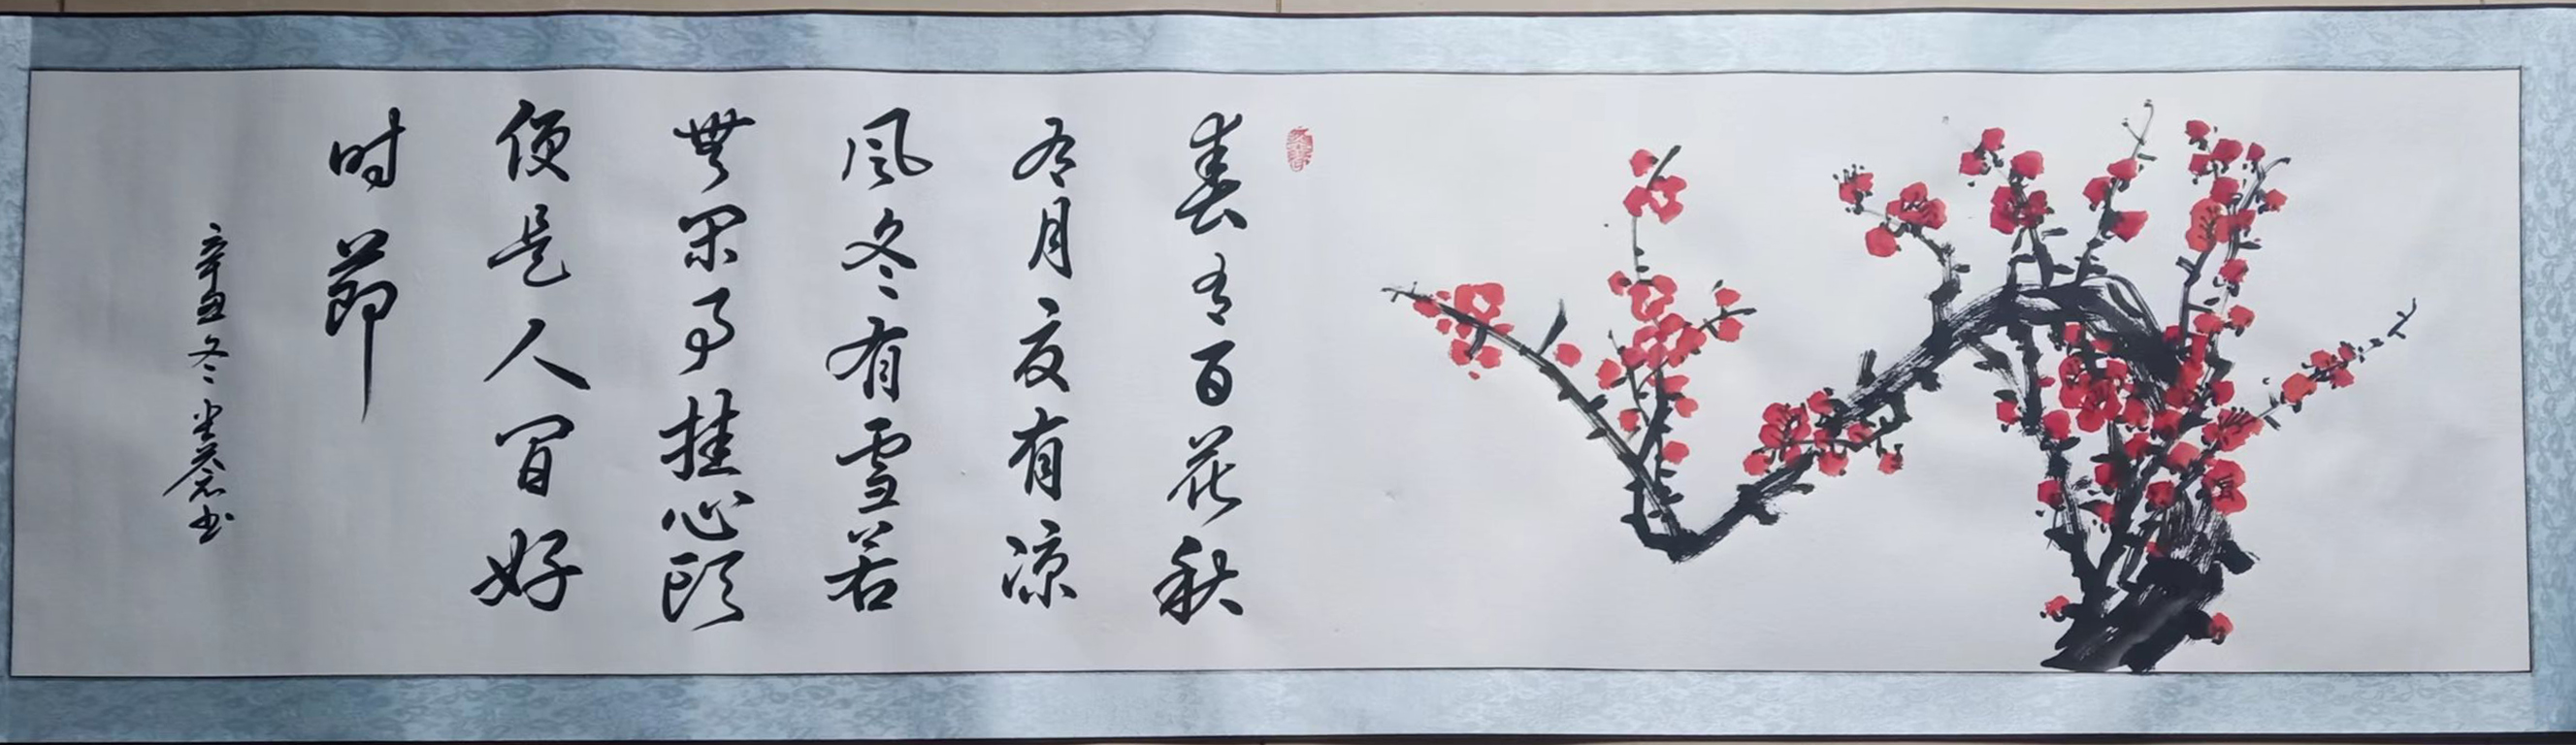 春有百花秋
有月夏有凉
風冬有雪若
無闲事挂心頭
便是人间好
时节
辛丑冬
书